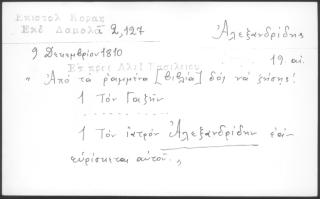 Επιστολ Κοραη
Εκδ Δαμαλᾶ 2,127 Ἀλεξανδρίδης
9 Δεκεμβρίου 1810 19 αἰ.
Επ προς Αλεξ Βασιλειου
" Ἀπὸ τὰ ραμμένα [βιβλία] δὸς νὰ ζήσῃς!
1 Τὸν Γαζῆν
1 Τὸν ἰατρὸν Ἀλεξανδρίδην ἐὰν
εὑρίσκεται αὐτοῦ. „